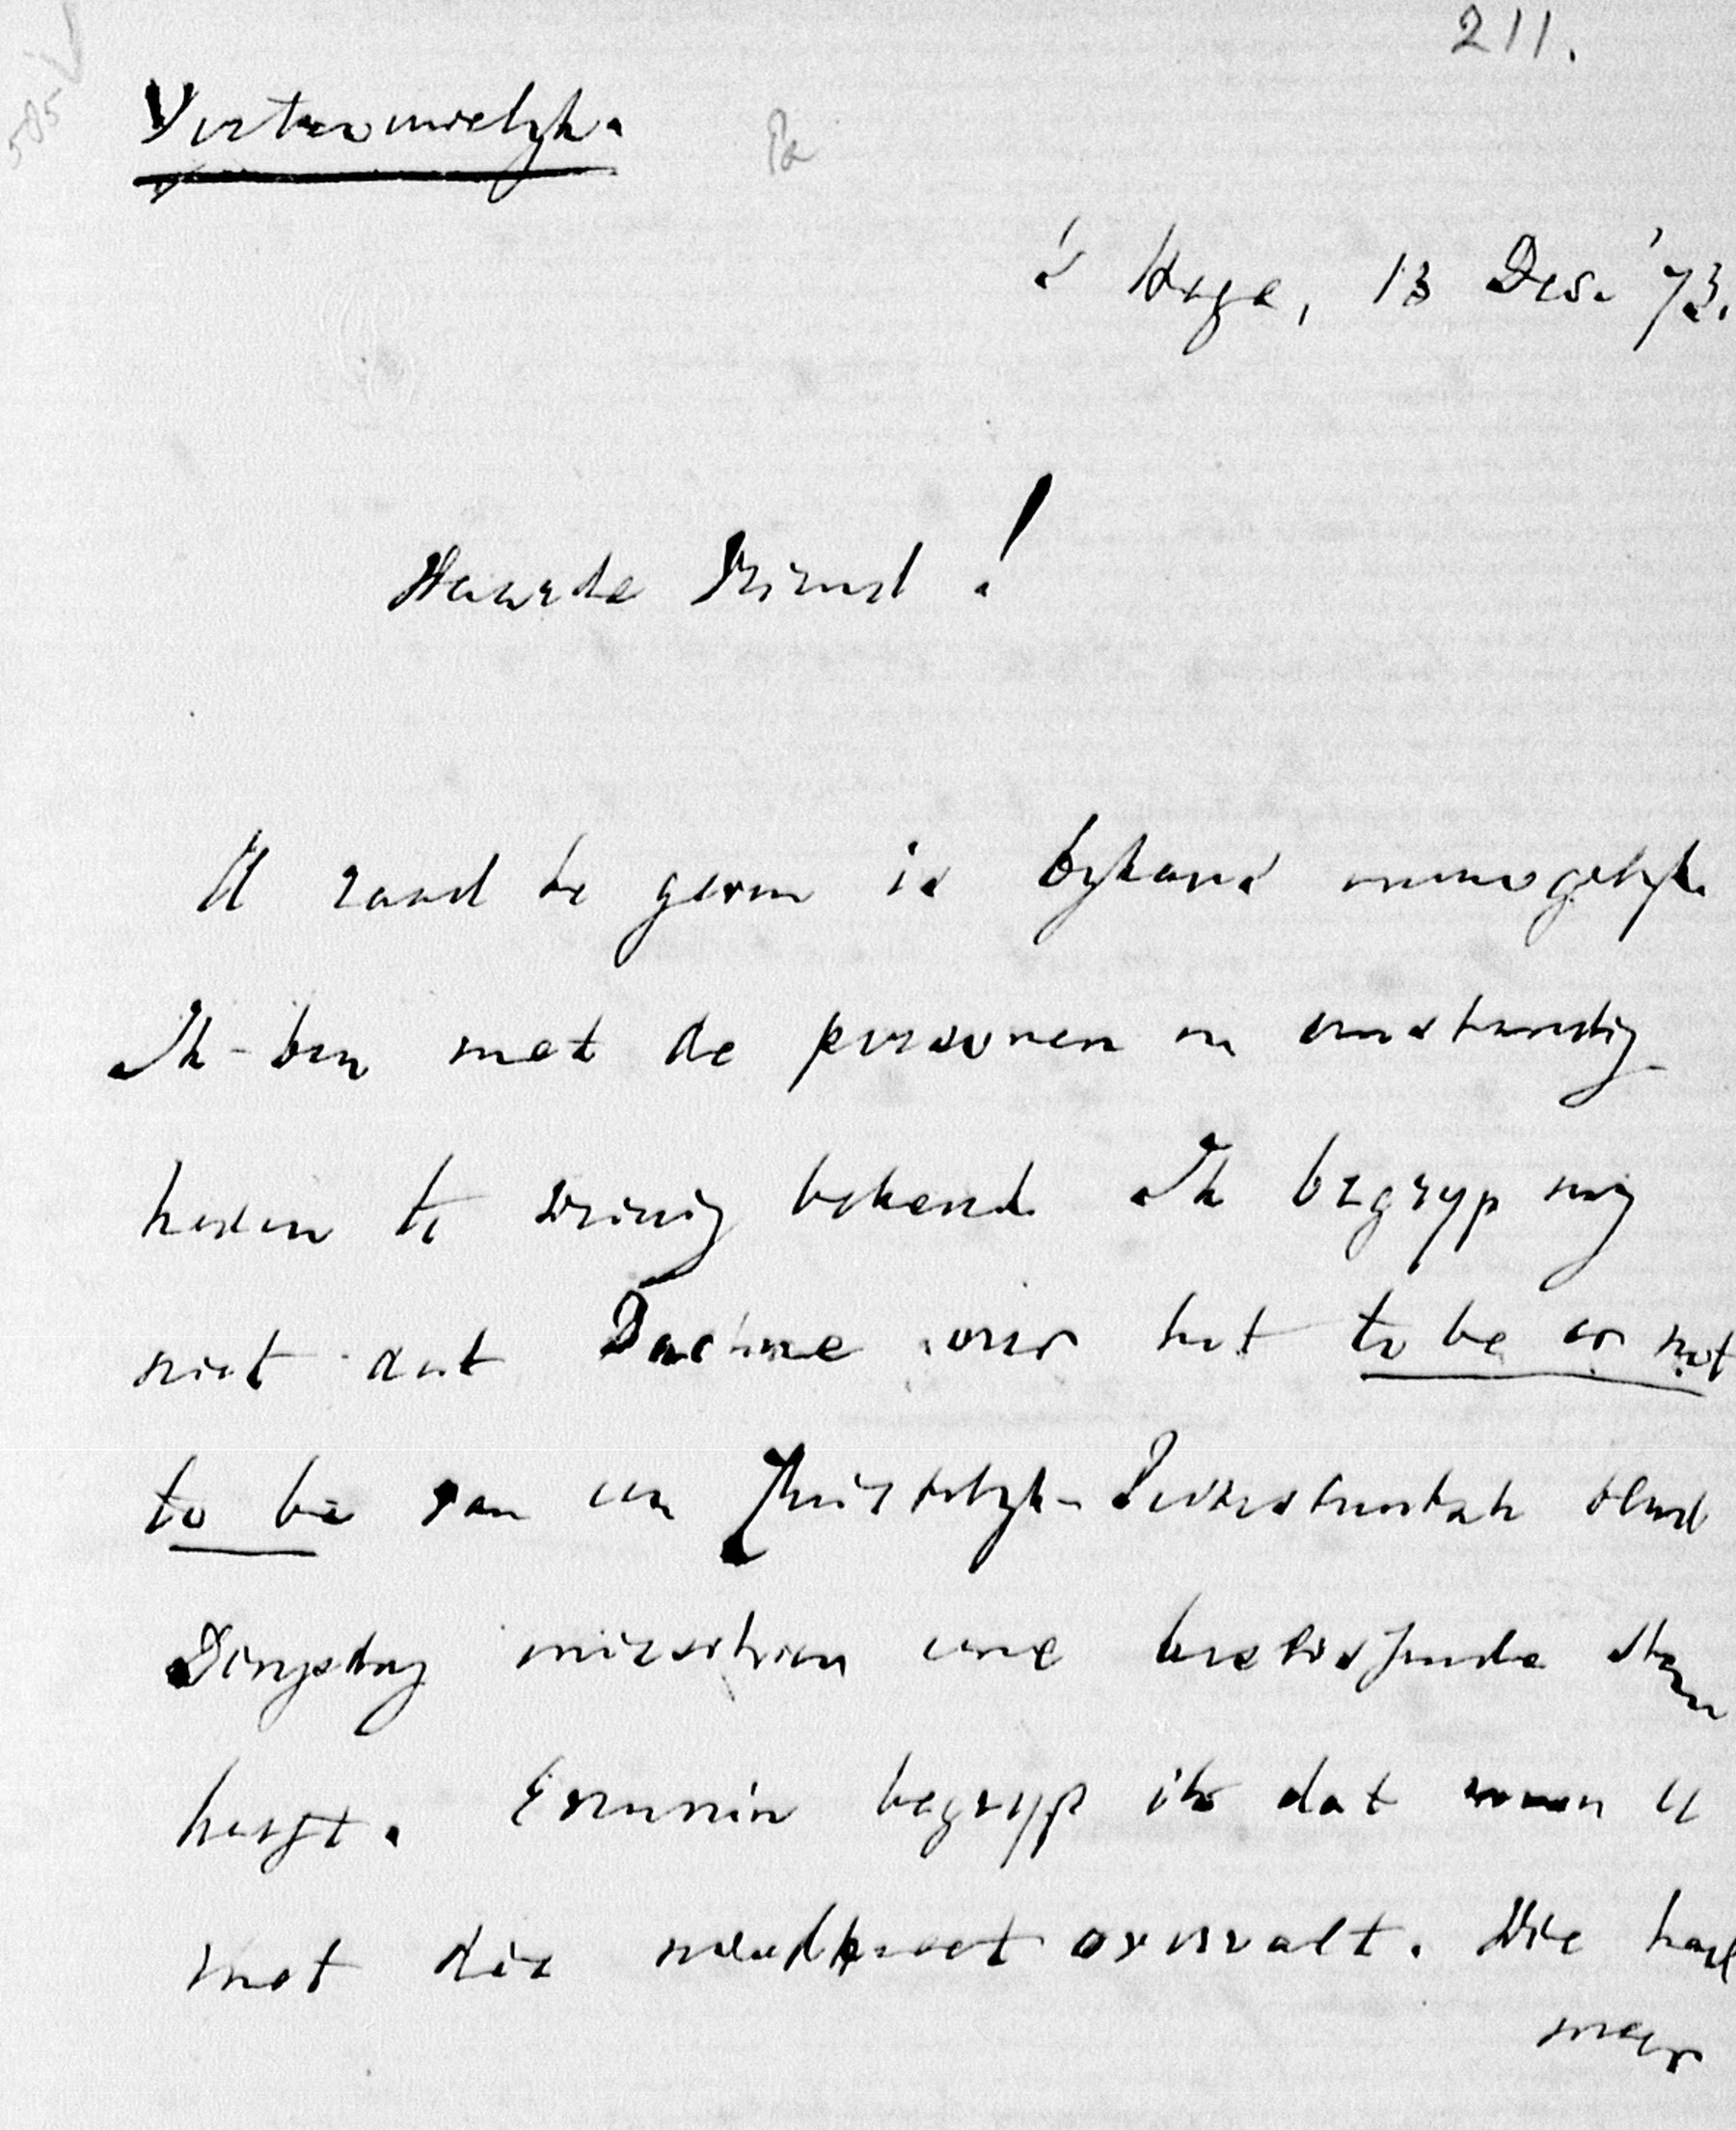 211.
585
Vertrouwelijk.
Pa
's Hage, 13 Dec. '73.
Waarde Vriend!
U raad te geven is bykans onmogelyk.
Ik ben met de personen en omstandig-
heden te weinig bekend. Ik begryp my
niet dat over het to be or not
to be van een Christelyk-Protestantsch blad
Dingsdag misschien eene beslissende stem
hergt. Evenmin begryp ik dat men U
met die overvalt. Wie had
meer